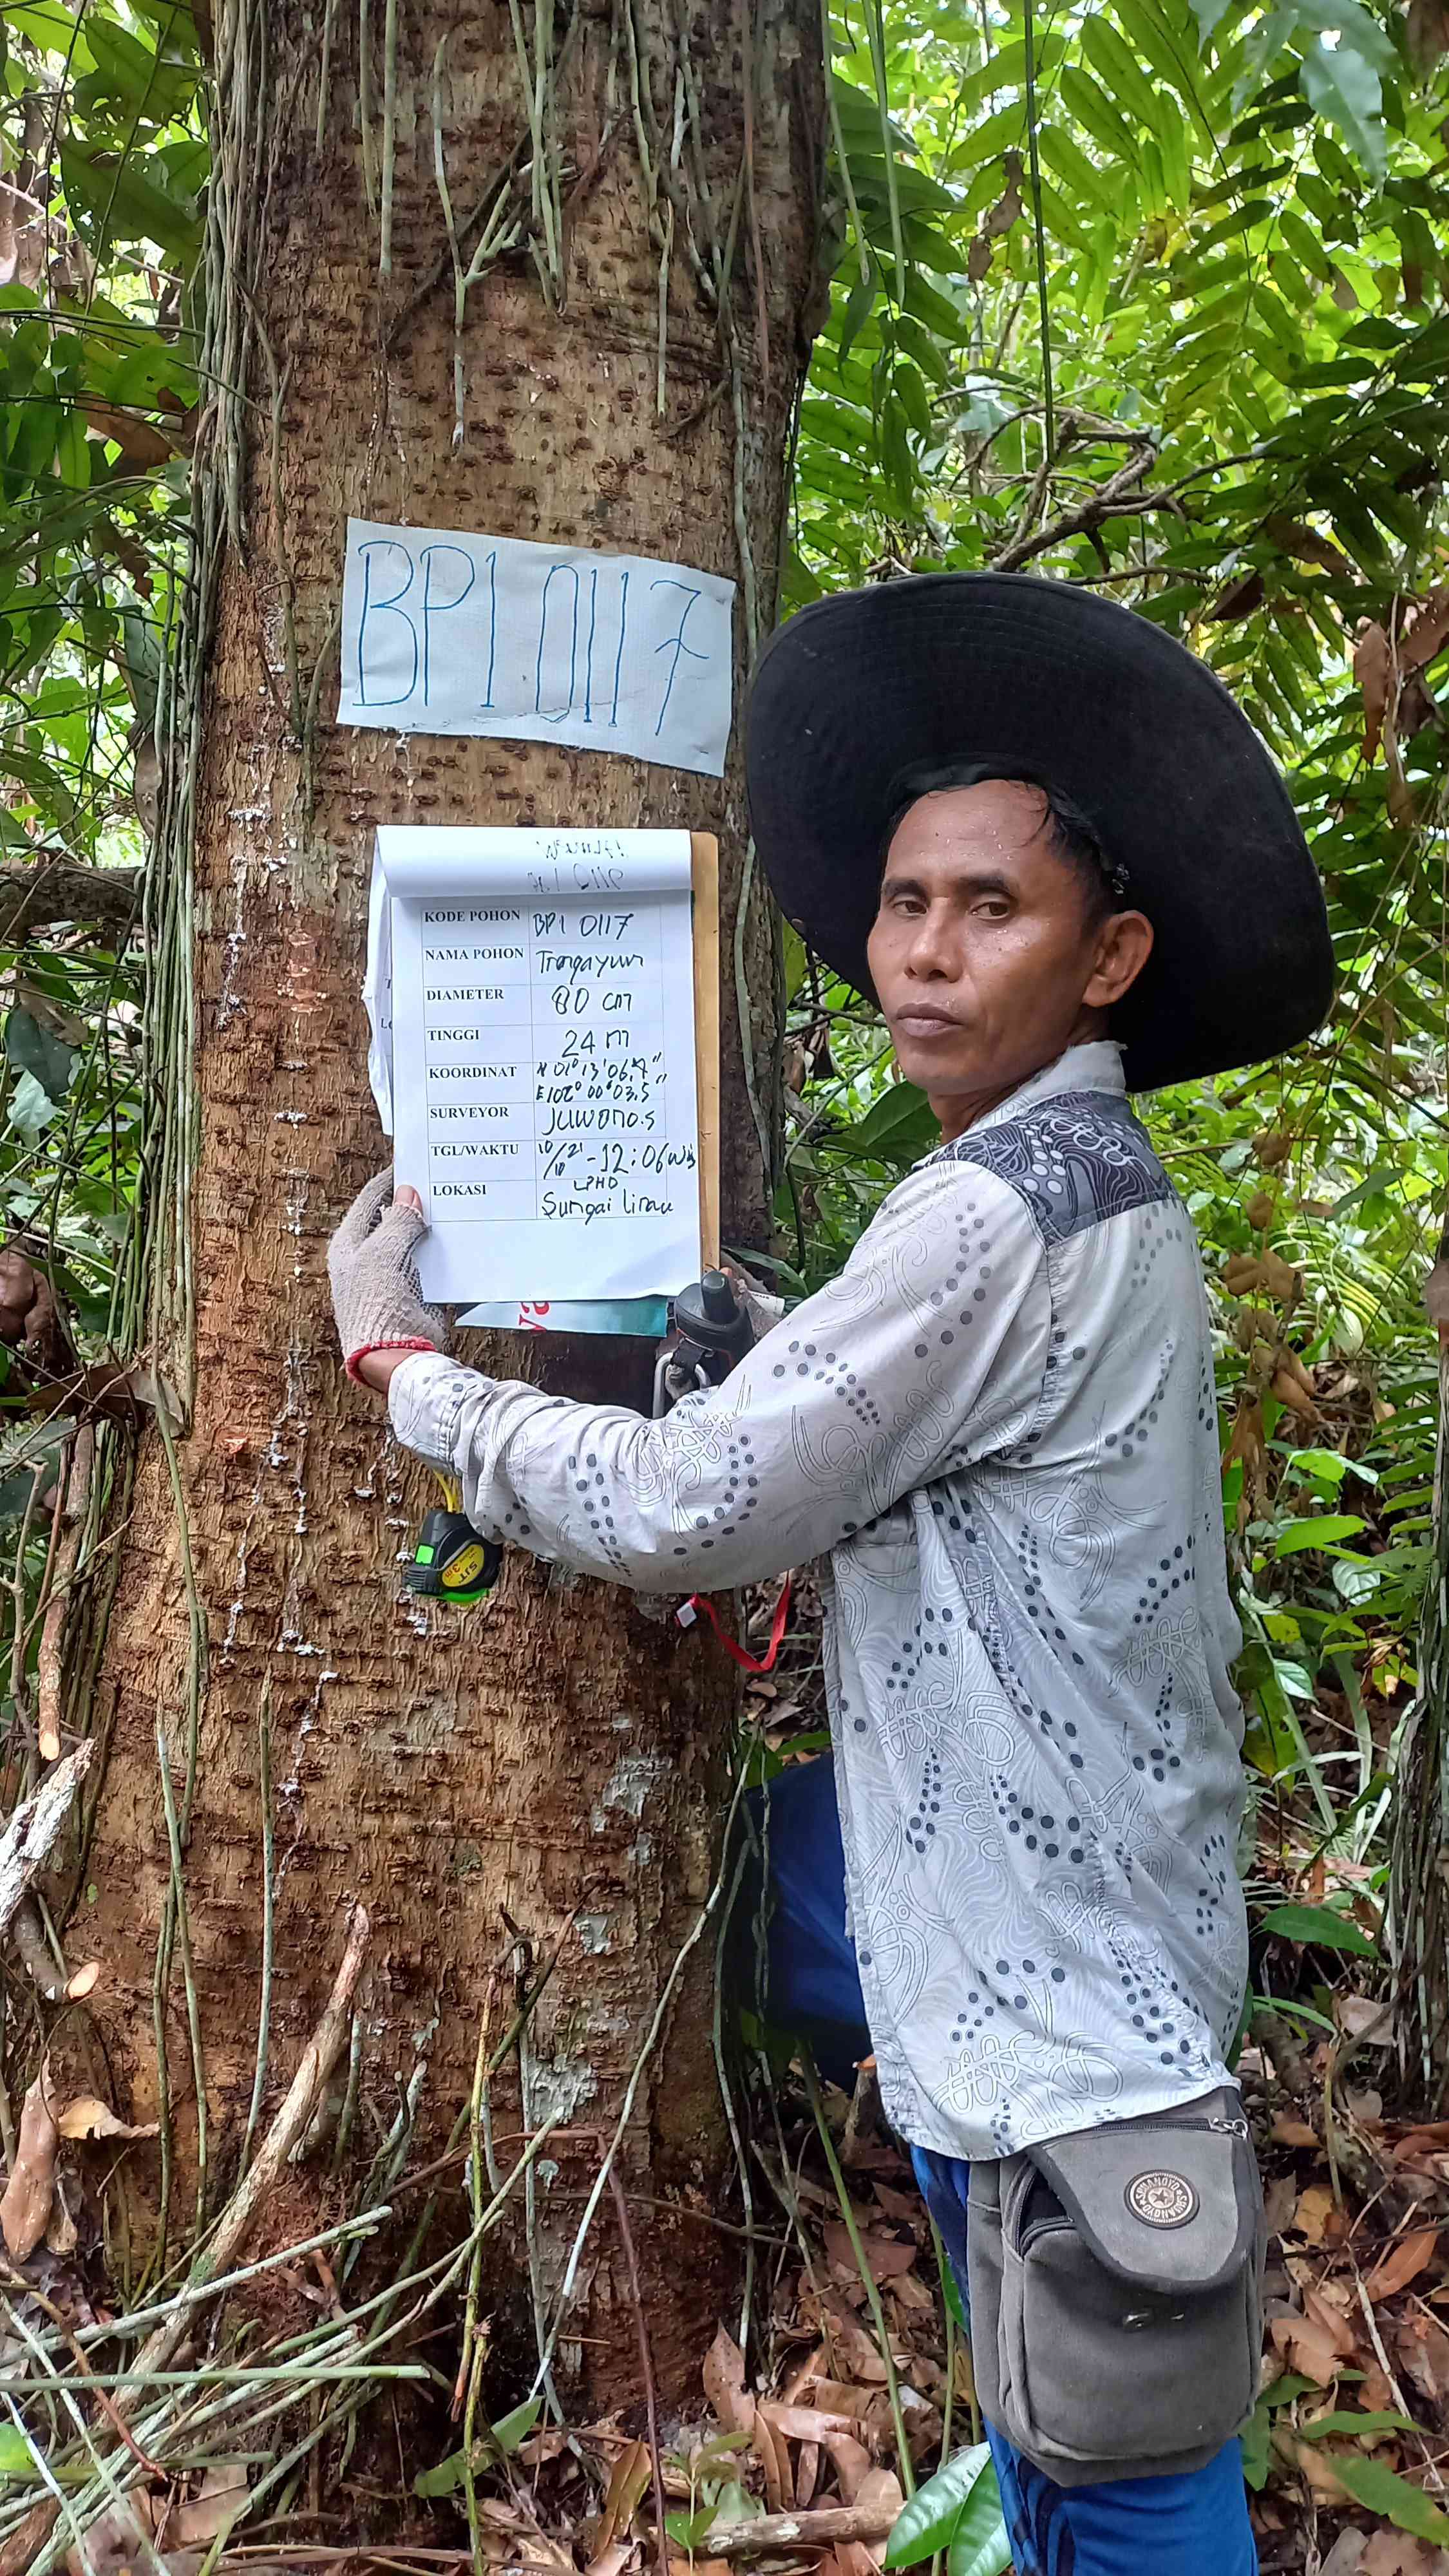 BP1 0117
KODE POHON BP1 0117
NAMA POHON
DIAMETER 80 cm
TINGGI 24 m
KOORDINAT N 01° 13' 06,4"
E 102° 00' 03,5"
SURVEYOR Juwono.s
TGL/WAKTU 10/10 21 - 12:06 wib
LPHD
LOKASI Sungai lirau